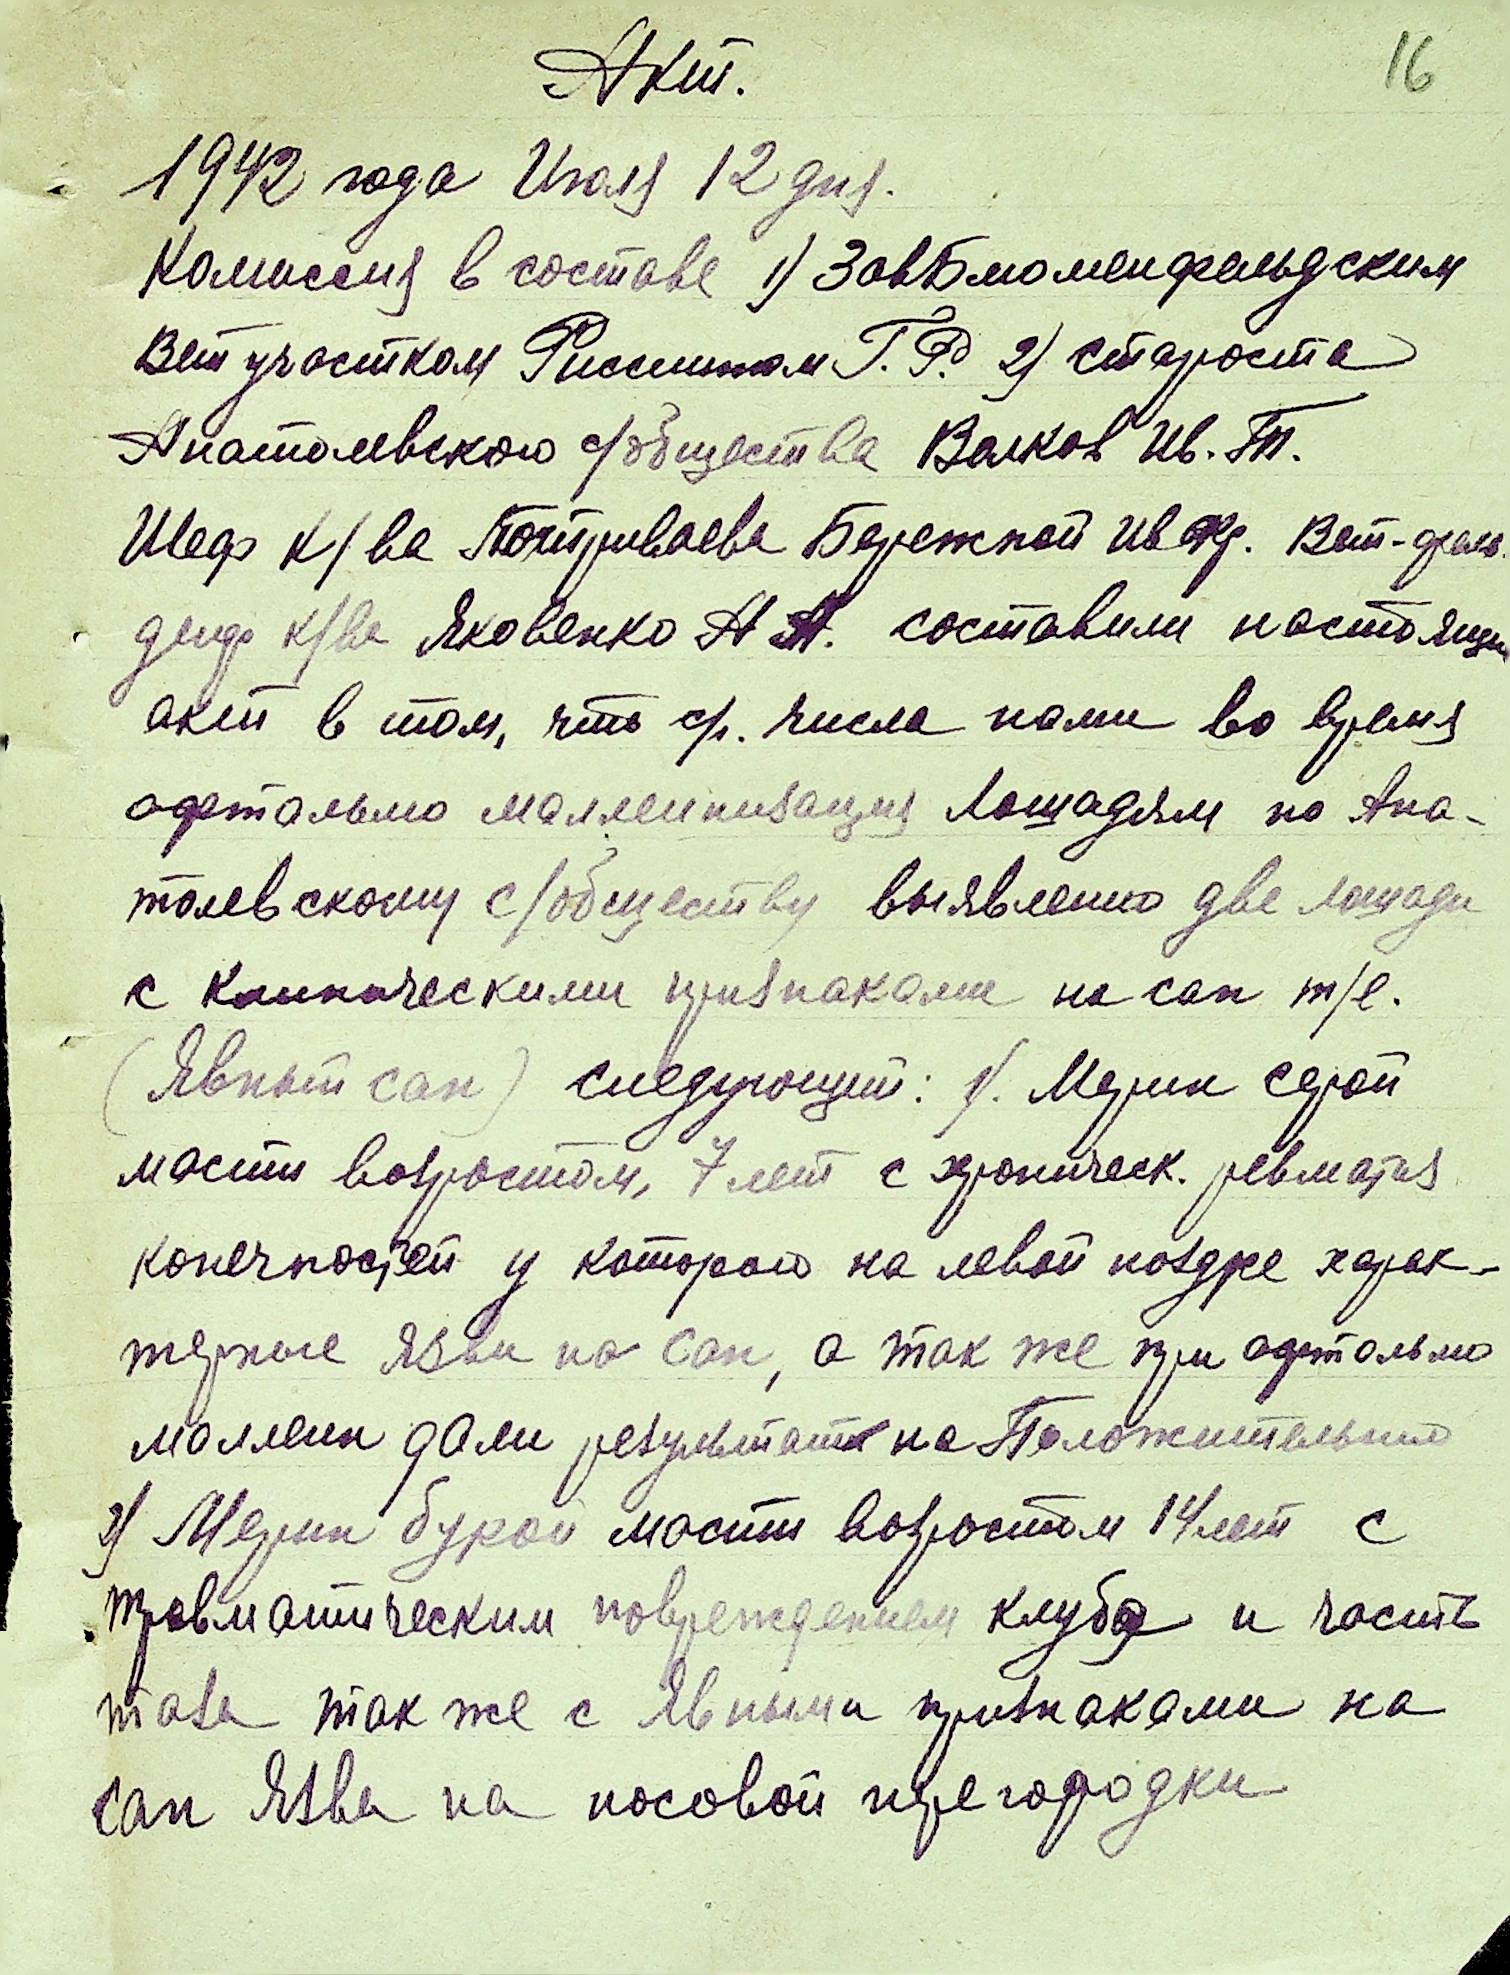 16
Акт.
1942 года Июля 12 дня.
Комиссия в составе 1) ЗавБлюменфельдским
Вет участком Г. Р. 2) староста
Анатолевского с/общества Волков Ив. Т.
Шеф к/ва Бережной Ив Гр. Вет-фель
дшр к/ва Яковенко А А. составили настоящи
акт в том, что с/. числа нами во время
офтальмо маллеинизация лошадям по Ана-
толевскому с/обществу выявленно две лошади
с клиническими признаками на сап т/е.
(Явный сап) следующей: 1/. Мерин серой
масти возростом, 7 лет с хроническ. ревматиз
конечностей у которого на левой ноздре харак-
терные язвы на Сап, а так же при офтальмо
маллеин дали результат на Положительно
2/ Мерин бурой масти возростом 14 лет с
травматическим повреждением клуба и часть
таза так же с явными признаками на
сап язвы на носовой перегородки